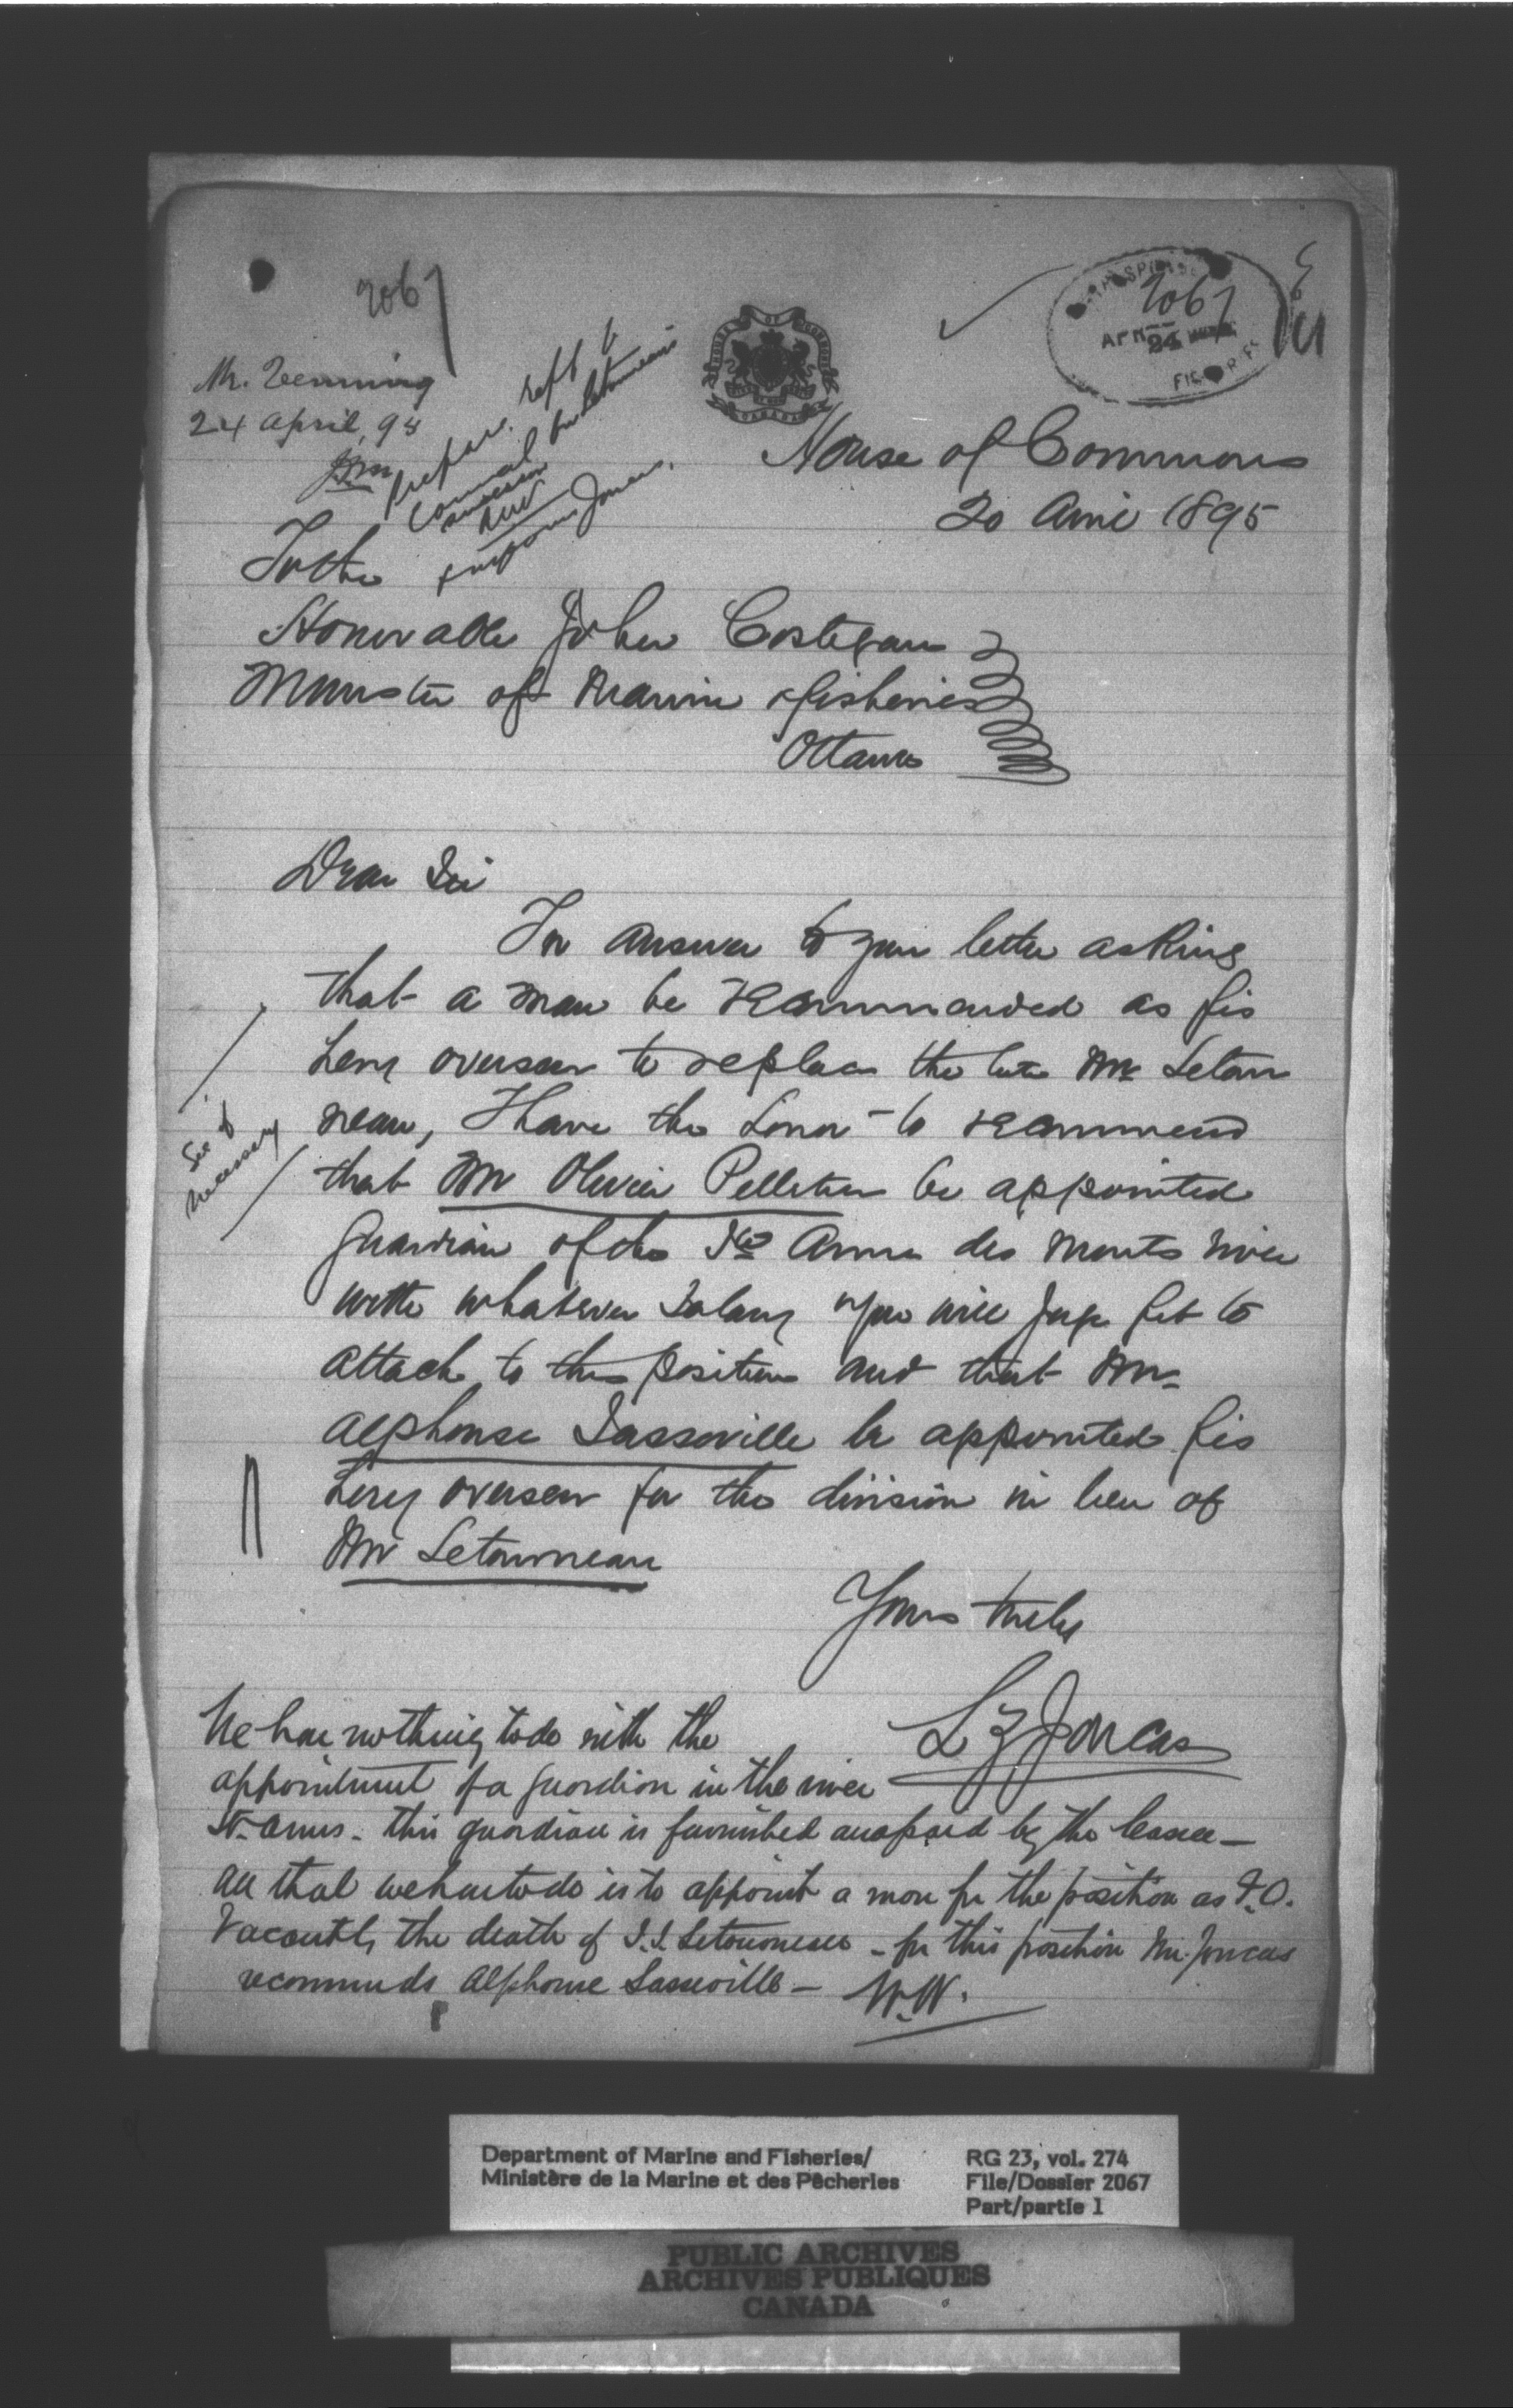 2067
Mr. Venning
24 April, 95
Prepare rept to
Council for Letourneau's
successor
2067
APR 24
House of Commons
20 Avril 1895
To the
Honorable John Costigan
Minister of Marine & fisheries
Ottawa
Dear Sir
In answer to your letter asking
that a man be recommended as fis
hery overseer to replace the late Mr Letour
neau, I have the honor to recommend
that Mr Olivier Pelletier be appointed
guardian of the Ste Anne des Monts river
with whatever salary you will juge fit to
attach to this position and that Mr
Alphonse Sasseville be appointed fis
hery overseer for the division in lieu of
Mr Letourneau
See if
necessary
Yours truly
L Z Joncas
We have nothing to do with the
appointment of a guardian in the river
St. Annes - this guardian is furnished and paid by the lessee -
All that we have to do is to appoint a man for the position as F.O.
vacant by the death of J.S. Letourneau - for this position Mr. Joncas
recommends Alphonse Sasseville - W.W.
Department of Marine and Fisheries/
Ministère de la Marine et des Pêcheries
RG 23, vol. 274
File/Dossier 2067
Part/partie 1
PUBLIC ARCHIVES
ARCHIVES PUBLIQUES
CANADA